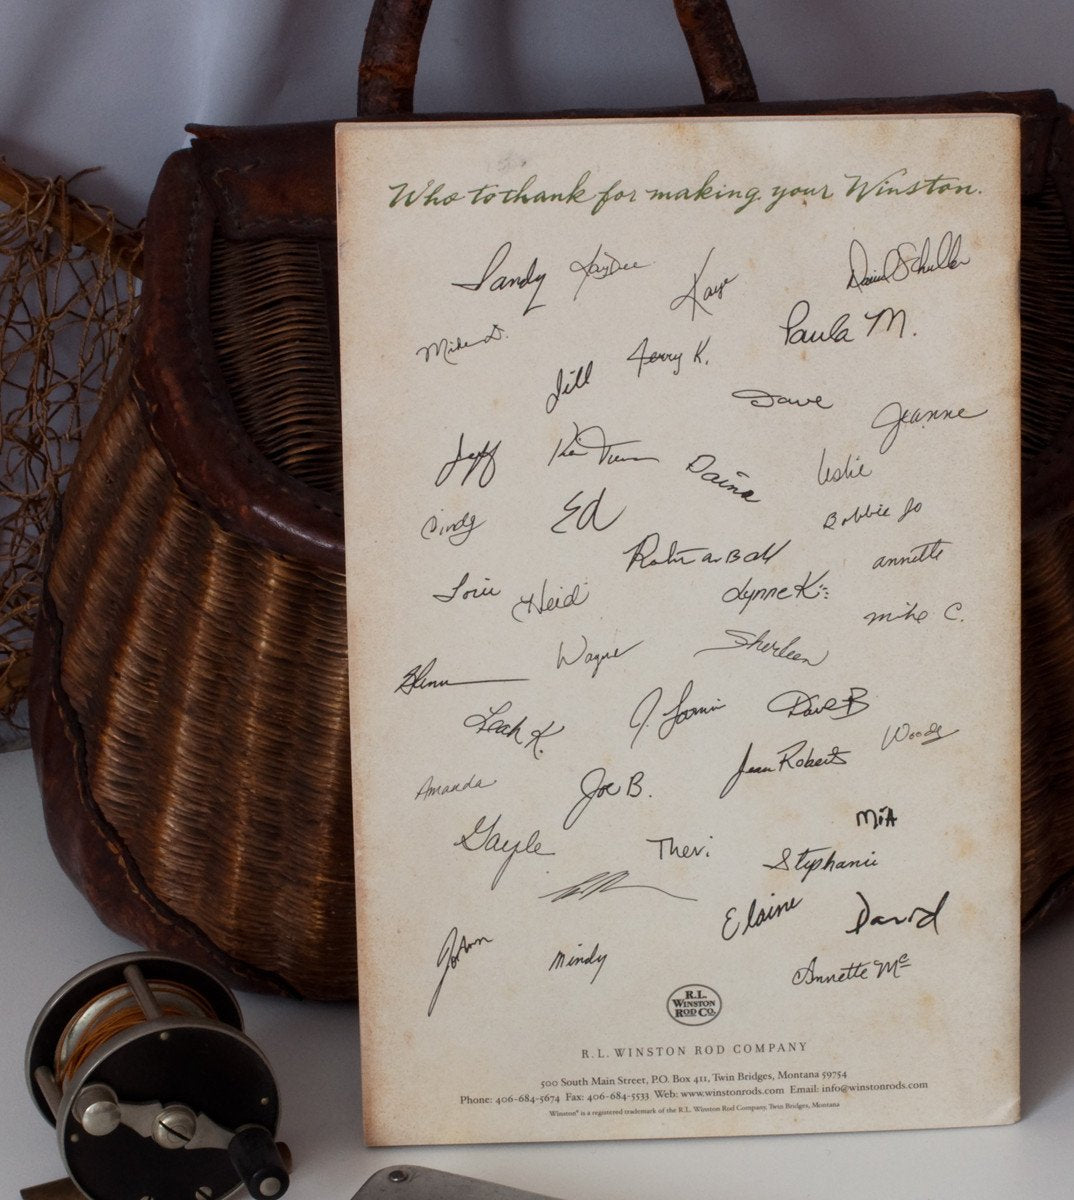 Who to thank for making your Winston.
Sandy KayDee Kaye David Schuller
Mike D. Paula M.
Jill Terry K.
Dave Jeanne
Jeff Daina Leslie
Cindy Ed Bobbie Jo
annette
Lorie Heidi Lynne K
mike C.
Glenn Wayne Sherleen
Leah K. Dave B Woody
Amanda Joe B. Jean Roberts
MiA
Gayle Theri Stephanie
Elaine David
JoAnn Mindy Annette Mc
R.L.
WINSTON
ROD CO.
R.L. WINSTON ROD COMPANY
500 South Main Street, P.O. Box 411, Twin Bridges, Montana 59754
Phone: 406-684-5674 Fax: 406-684-5533 Web: www.winstonrods.com Email: info@winstonrods.com
Winston® is a registered trademark of the R.L. Winston Rod Company, Twin Bridges, Montana